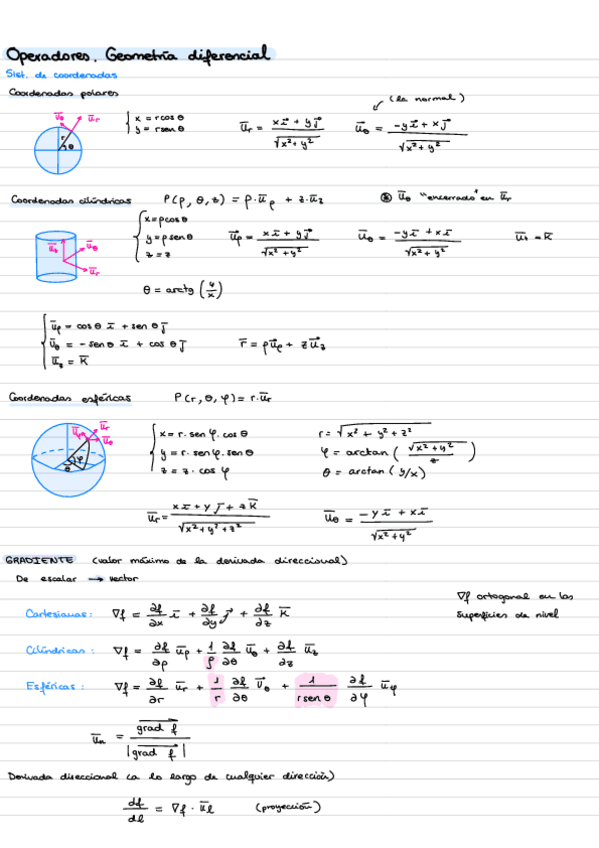 Operadores. Geometría diferencial
Sist. de coordenadas
Coordenadas polares
(la normal)
ū_θ ū_r r θ
{ x = r cos θ
y = r sen θ
ū_r = (x ī + y j̄) / √(x² + y²)
ū_θ = (-y ī + x j̄) / √(x² + y²)
Coordenadas cilíndricas P(ρ, θ, z) = ρ·ū_ρ + z·ū_z ū_θ "encerrado" en ū_r
ū_z ū_θ ū_r
{ x = ρ cos θ
y = ρ sen θ
z = z
ū_ρ = (x ī + y j̄) / √(x² + y²)
ū_θ = (-y ī + x ī) / √(x² + y²)
ū_z = k̄
θ = arctg (y/x)
{ ū_ρ = cos θ ī + sen θ j̄
ū_θ = -sen θ ī + cos θ j̄
ū_z = k̄
r̄ = ρ ū_ρ + z ū_z
Coordenadas esféricas P(r, θ, φ) = r·ū_r
ū_φ ū_r ū_θ φ θ
{ x = r · sen φ · cos θ
y = r · sen φ · sen θ
z = z · cos φ
r = √(x² + y² + z²)
φ = arctan (√(x² + y²) / z)
θ = arctan (y/x)
ū_r = (x ī + y j̄ + z k̄) / √(x² + y² + z²)
ū_θ = (-y ī + x ī) / √(x² + y²)
GRADIENTE (valor máximo de la derivada direccional)
De escalar → vector
∇f ortogonal en las
superficies de nivel
Cartesianas: ∇f = ∂f/∂x ī + ∂f/∂y j̄ + ∂f/∂z k̄
Cilíndricas: ∇f = ∂f/∂ρ ū_ρ + 1/ρ ∂f/∂θ ū_θ + ∂f/∂z ū_z
Esféricas: ∇f = ∂f/∂r ū_r + 1/r ∂f/∂θ ū_θ + 1/(r sen θ) ∂f/∂φ ū_φ
ū_n = grad f / |grad f|
Derivada direccional (a lo largo de cualquier dirección)
df/dl = ∇f · ū_l (proyección)